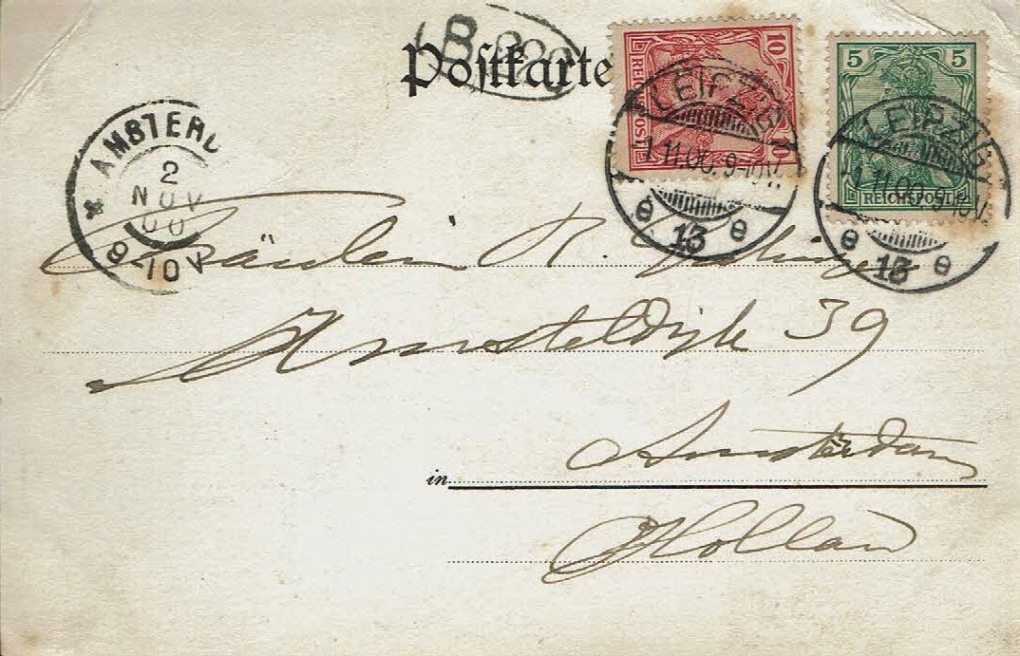 Postkarte
10
REICHSPOST
5 5
REICHSPOST
LEIPZIG
-1.11.00.9-10V.
13
LEIPZIG
-1.11.00.9-10V.
13
AMSTERD
2
NOV
00
8-10V
Fräulein R.
Amsteldijk 39
in Amsterdam
Holland